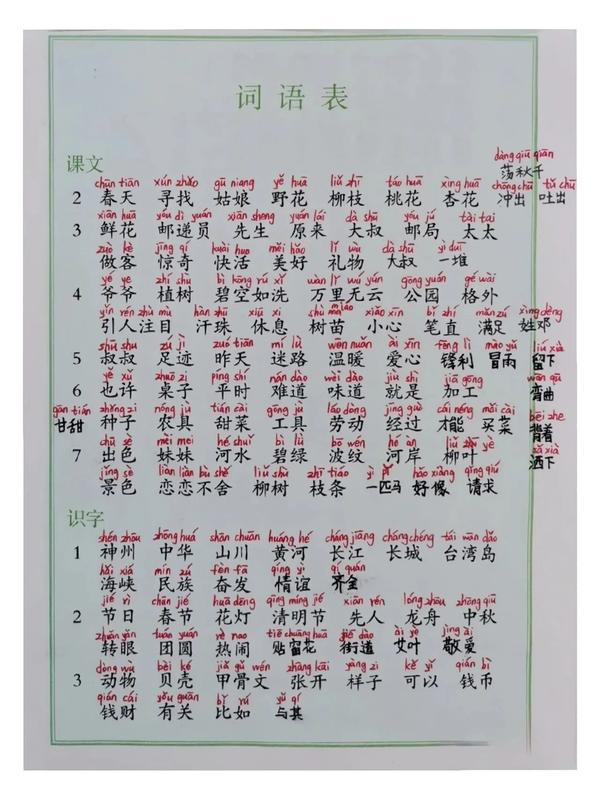 词语表
课文
dàng qiū qiān
荡秋千
chūn tiān xún zhǎo gū niang yě huā liǔ zhī táo huā xìng huā chōng chū tǔ chū
2 春天 寻找 姑娘 野花 柳枝 桃花 杏花 冲出 吐出
xiān huā yóu dì yuán xiān sheng yuán lái dà shū yóu jú tài tai
3 鲜花 邮递员 先生 原来 大叔 邮局 太太
zuò kè jīng qí kuài huo měi hǎo lǐ wù dà shū yì duī
做客 惊奇 快活 美好 礼物 大叔 一堆
yé ye zhí shù bì kōng rú xǐ wàn lǐ wú yún gōng yuán gé wài
4 爷爷 植树 碧空如洗 万里无云 公园 格外
yǐn rén zhù mù hàn zhū xiū xi shù miáo xiǎo xīn bǐ zhí mǎn zú xìng dèng
引人注目 汗珠 休息 树苗 小心 笔直 满足 姓邓
shū shu zú jì zuó tiān mí lù wēn nuǎn ài xīn fēng lì mào yǔ liú xià
5 叔叔 足迹 昨天 迷路 温暖 爱心 锋利 冒雨 留下
yě xǔ zhuō zi píng shí nán dào wèi dào jiù shì jiā gōng wān qū
6 也许 桌子 平时 难道 味道 就是 加工 弯曲
gān tián zhǒng zi nóng jù tián cài gōng jù láo dòng jīng guò cái néng mǎi cài bēi zhe
甘甜 种子 农具 甜菜 工具 劳动 经过 才能 买菜 背着
chū sè mèi mei hé shuǐ bì lǜ bō wén hé àn liǔ yè sǎ xià
7 出色 妹妹 河水 碧绿 波纹 河岸 柳叶 洒下
jǐng sè liàn liàn bù shě liǔ shù zhī tiáo yì pǐ hǎo xiàng qǐng qiú
景色 恋恋不舍 柳树 枝条 一匹马 好像 请求
识字
shén zhōu zhōng huá shān chuān huáng hé cháng jiāng cháng chéng tái wān dǎo
1 神州 中华 山川 黄河 长江 长城 台湾岛
hǎi xiá mín zú fèn fā qíng yì qí quán
海峡 民族 奋发 情谊 齐全
jié rì chūn jié huā dēng qīng míng jié xiān rén lóng zhōu zhōng qiū
2 节日 春节 花灯 清明节 先人 龙舟 中秋
zhuǎn yǎn tuán yuán rè nao tiē chuāng huā jiē dào ài yè jìng ài
转眼 团圆 热闹 贴窗花 街道 艾叶 敬爱
dòng wù bèi ké jiǎ gǔ wén zhāng kāi yàng zi kě yǐ qián bì
3 动物 贝壳 甲骨文 张开 样子 可以 钱币
qián cái yǒu guān bǐ rú yǔ qí
钱财 有关 比如 与其